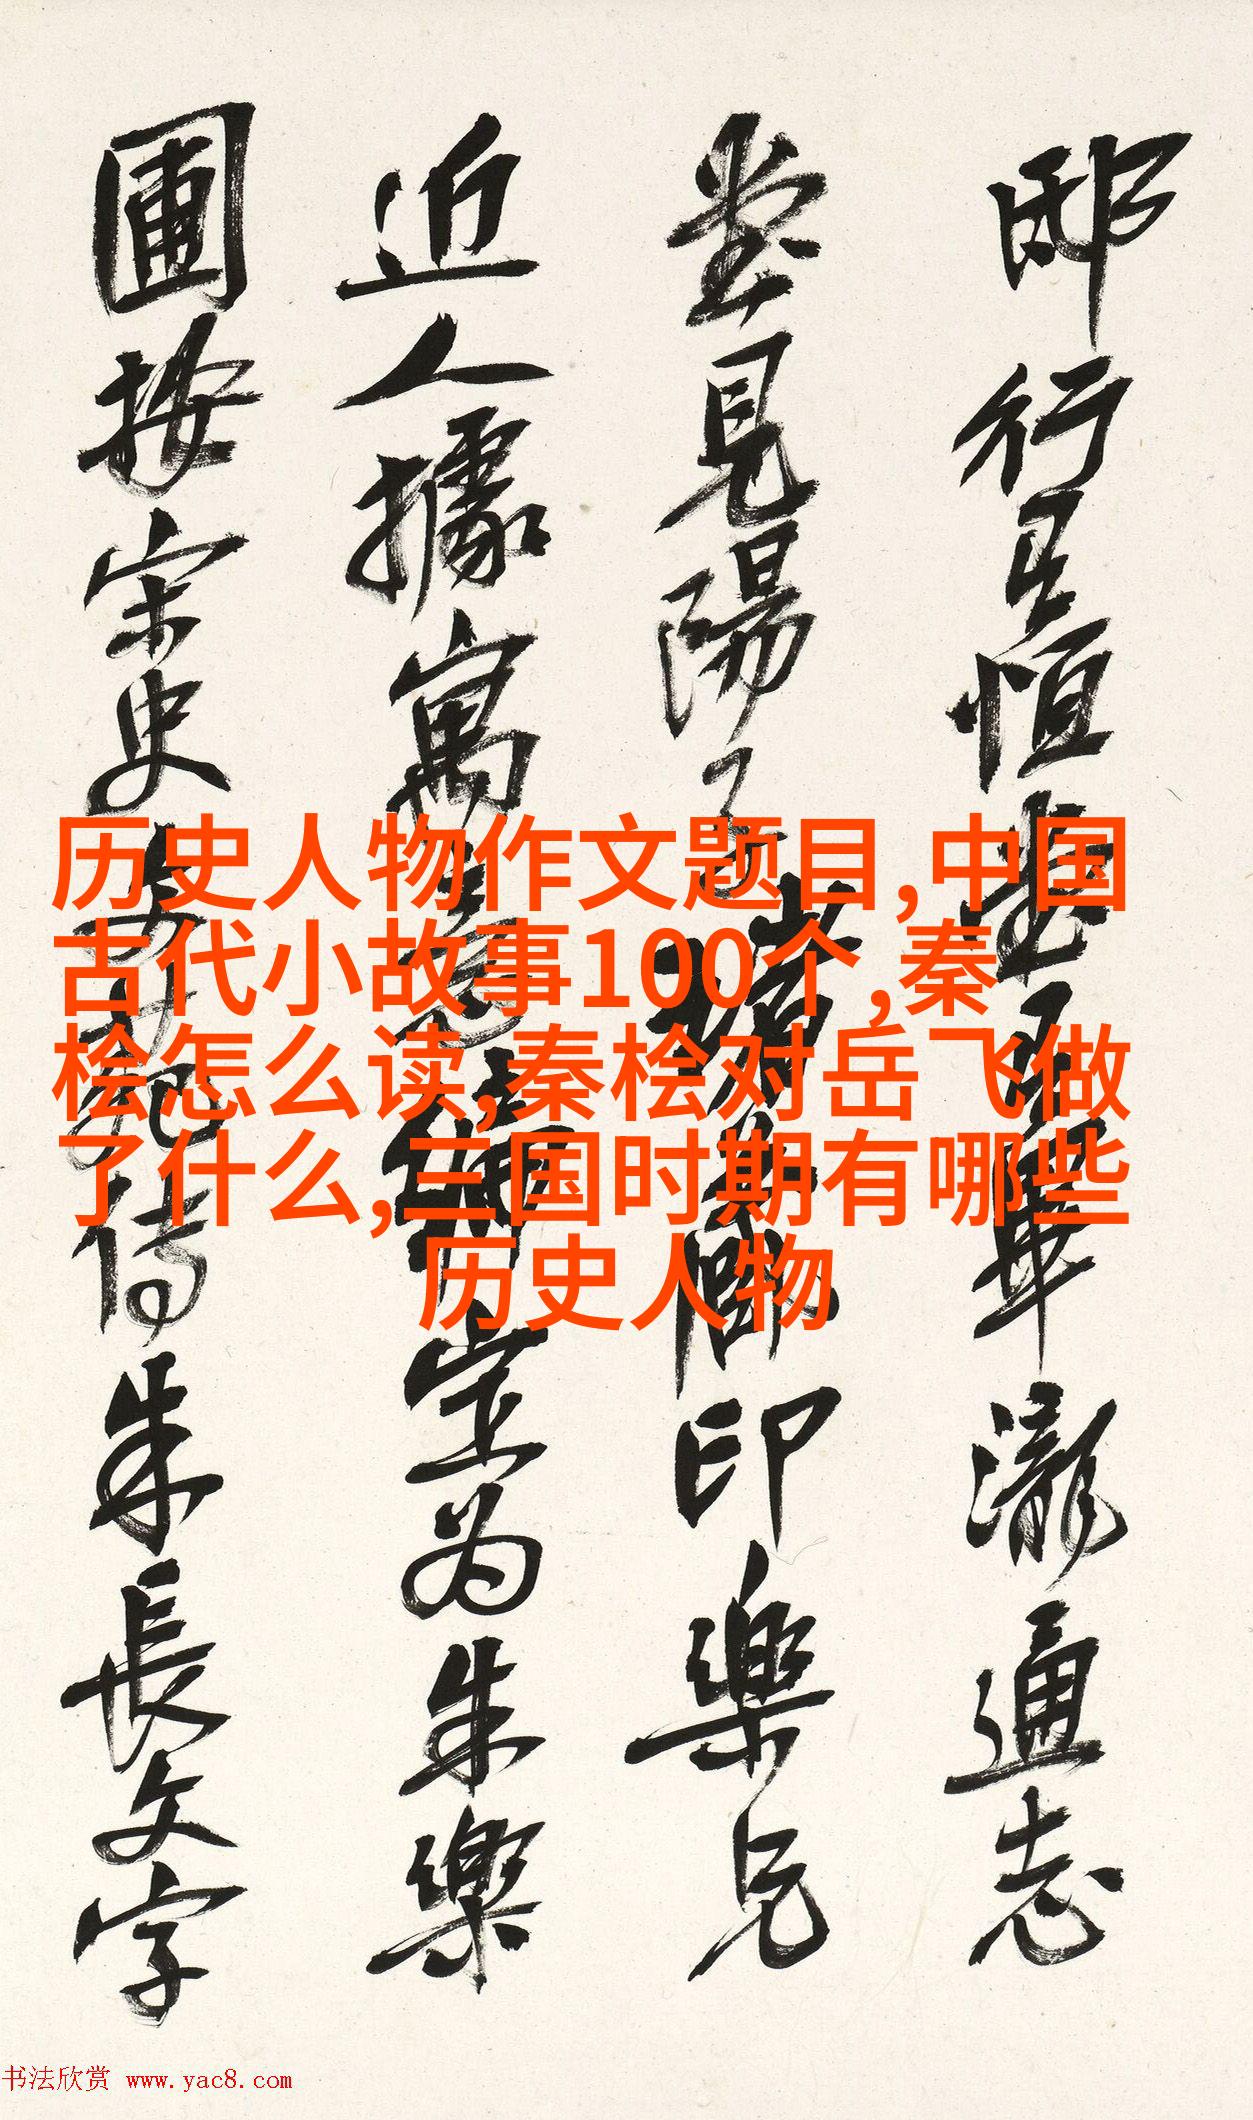 邸行且恒
瀧通志
堂見陽子
印樂兄
近人據寓意
定為朱樂
圃按宋史
傳朱長文字
历史人物作文题目,中国
古代小故事100个,秦
桧怎么读,秦桧对岳飞做
了什么,三国时期有哪些
历史人物
书法欣赏 www.yac8.com